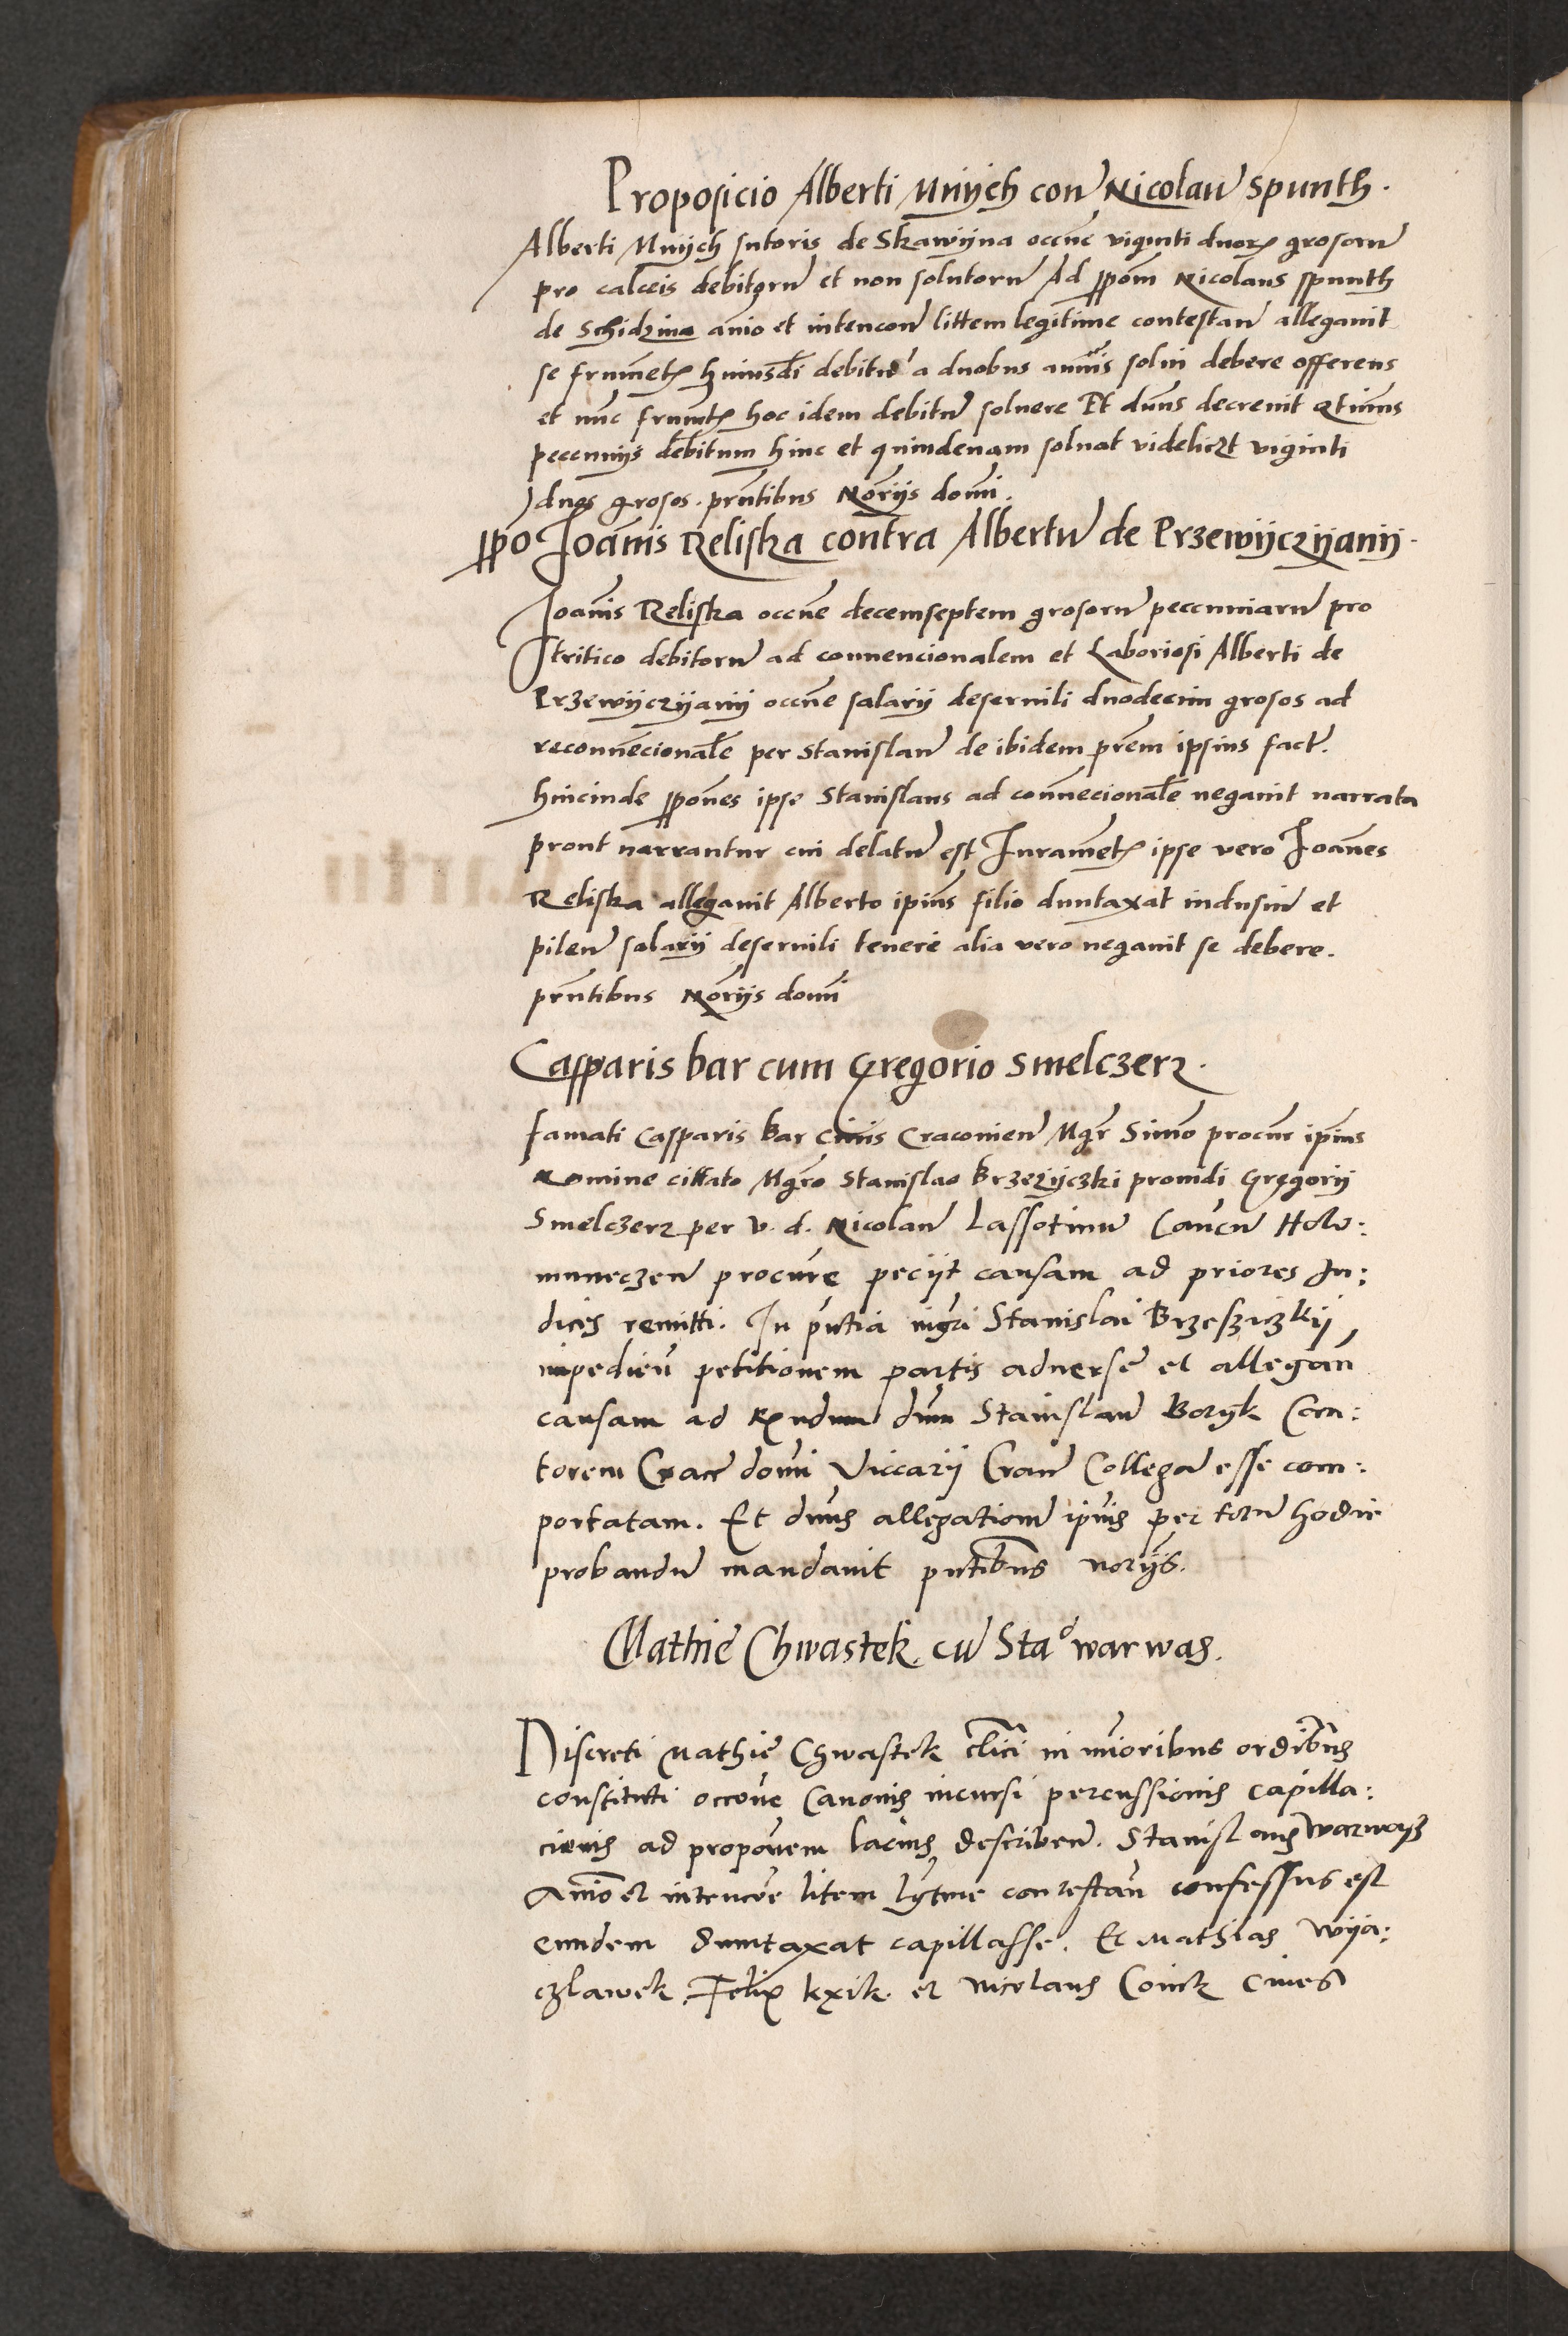 Proposicio Alberti Mnijch con̄ Nicolaū Spunth.
Alberti Mnijch sutoris de Skawijna occ̄ne viginti duorꝝ grosorū
pro calceis debitorū et non solutorū Ad ꝓpōm Nicolaus Spunth
de Schidzina anīo et intencon̄ littem legitime contestan̄ allegauit
se frumētꝝ huiusd̄i debitū a duobus annis solui debere offerens
et nūc frumtꝝ hoc idem debitū soluere Et dūns decreuit
peccunijs debitum hinc et quindenam soluat videliczt viginti
duos grosos. prn̄tibus Nōrijs domī.
ꝓpo Joānis Reliska contra Albertū de Przewijczijanij.
Joānis Reliska occ̄ne decemseptem grosorū peccuniarū pro
tritico debitorū ad conuencionalem et Laboriosi Alberti de
Przewijczijanij occ̄ne salarij deseruiti duodecim grosos ad
reconuēcionalē per Stanislaū de ibidem prēm ipsius fact̄.
hincinde ꝓpōnes ipse Stanislaus ad conuēcionalē negauit narrata
prout narrantur cui delatū est Juramētꝝ ipse vero Joānes
Reliska allegauit Alberto ipīus filio duntaxat indusiū et
pileū salarij deseruiti teneri alia vero negauit se debere.
prn̄tibus Nōrijs domī
Casparis bar cum Gregorio Smelczerz.
famati Casparis Bar Ciuis Cracouien̄ Mgr̄ Simō procur̄ ipīus
Nomine cittato Mgr̄o Stanislao Brzezijczki prouidi Gregorij
Smelczerz per v. d. Nicolaū Lassotinū Canc̄u Holo:
muneczen̄ procur̄e pecijt causam ad priores Ju:
dices remitti. In pn̄tia mgr̄i Stanislai Brzesziczkij
impedien̄ petitionem partis aduerse et allegan̄
causam ad dūm Stanislaū Borzk Can:
torem Crac̄ domī Viccarij Collegā esse com:
portatam. Et dūns allegationē ipīus per totū hodie
probandū mandauit pn̄tibus norijs.
Mathie Chwastek. cū Sta⁰ warwas.
Discreti Mathie Chwastek clīci in mīoribus ordībus
constituti occōne Canonis incursi percussionis capilla:
cionis ad propōnem lacius describen̄. Stanislaus Warwasz
Anīo et intencōe litem lgt̄me contestan̄ confessus est
eundem duntaxat capillasse. Et Mathias Wija:
czlawek, Felix kxik. et Nicolaus Conick Ciues